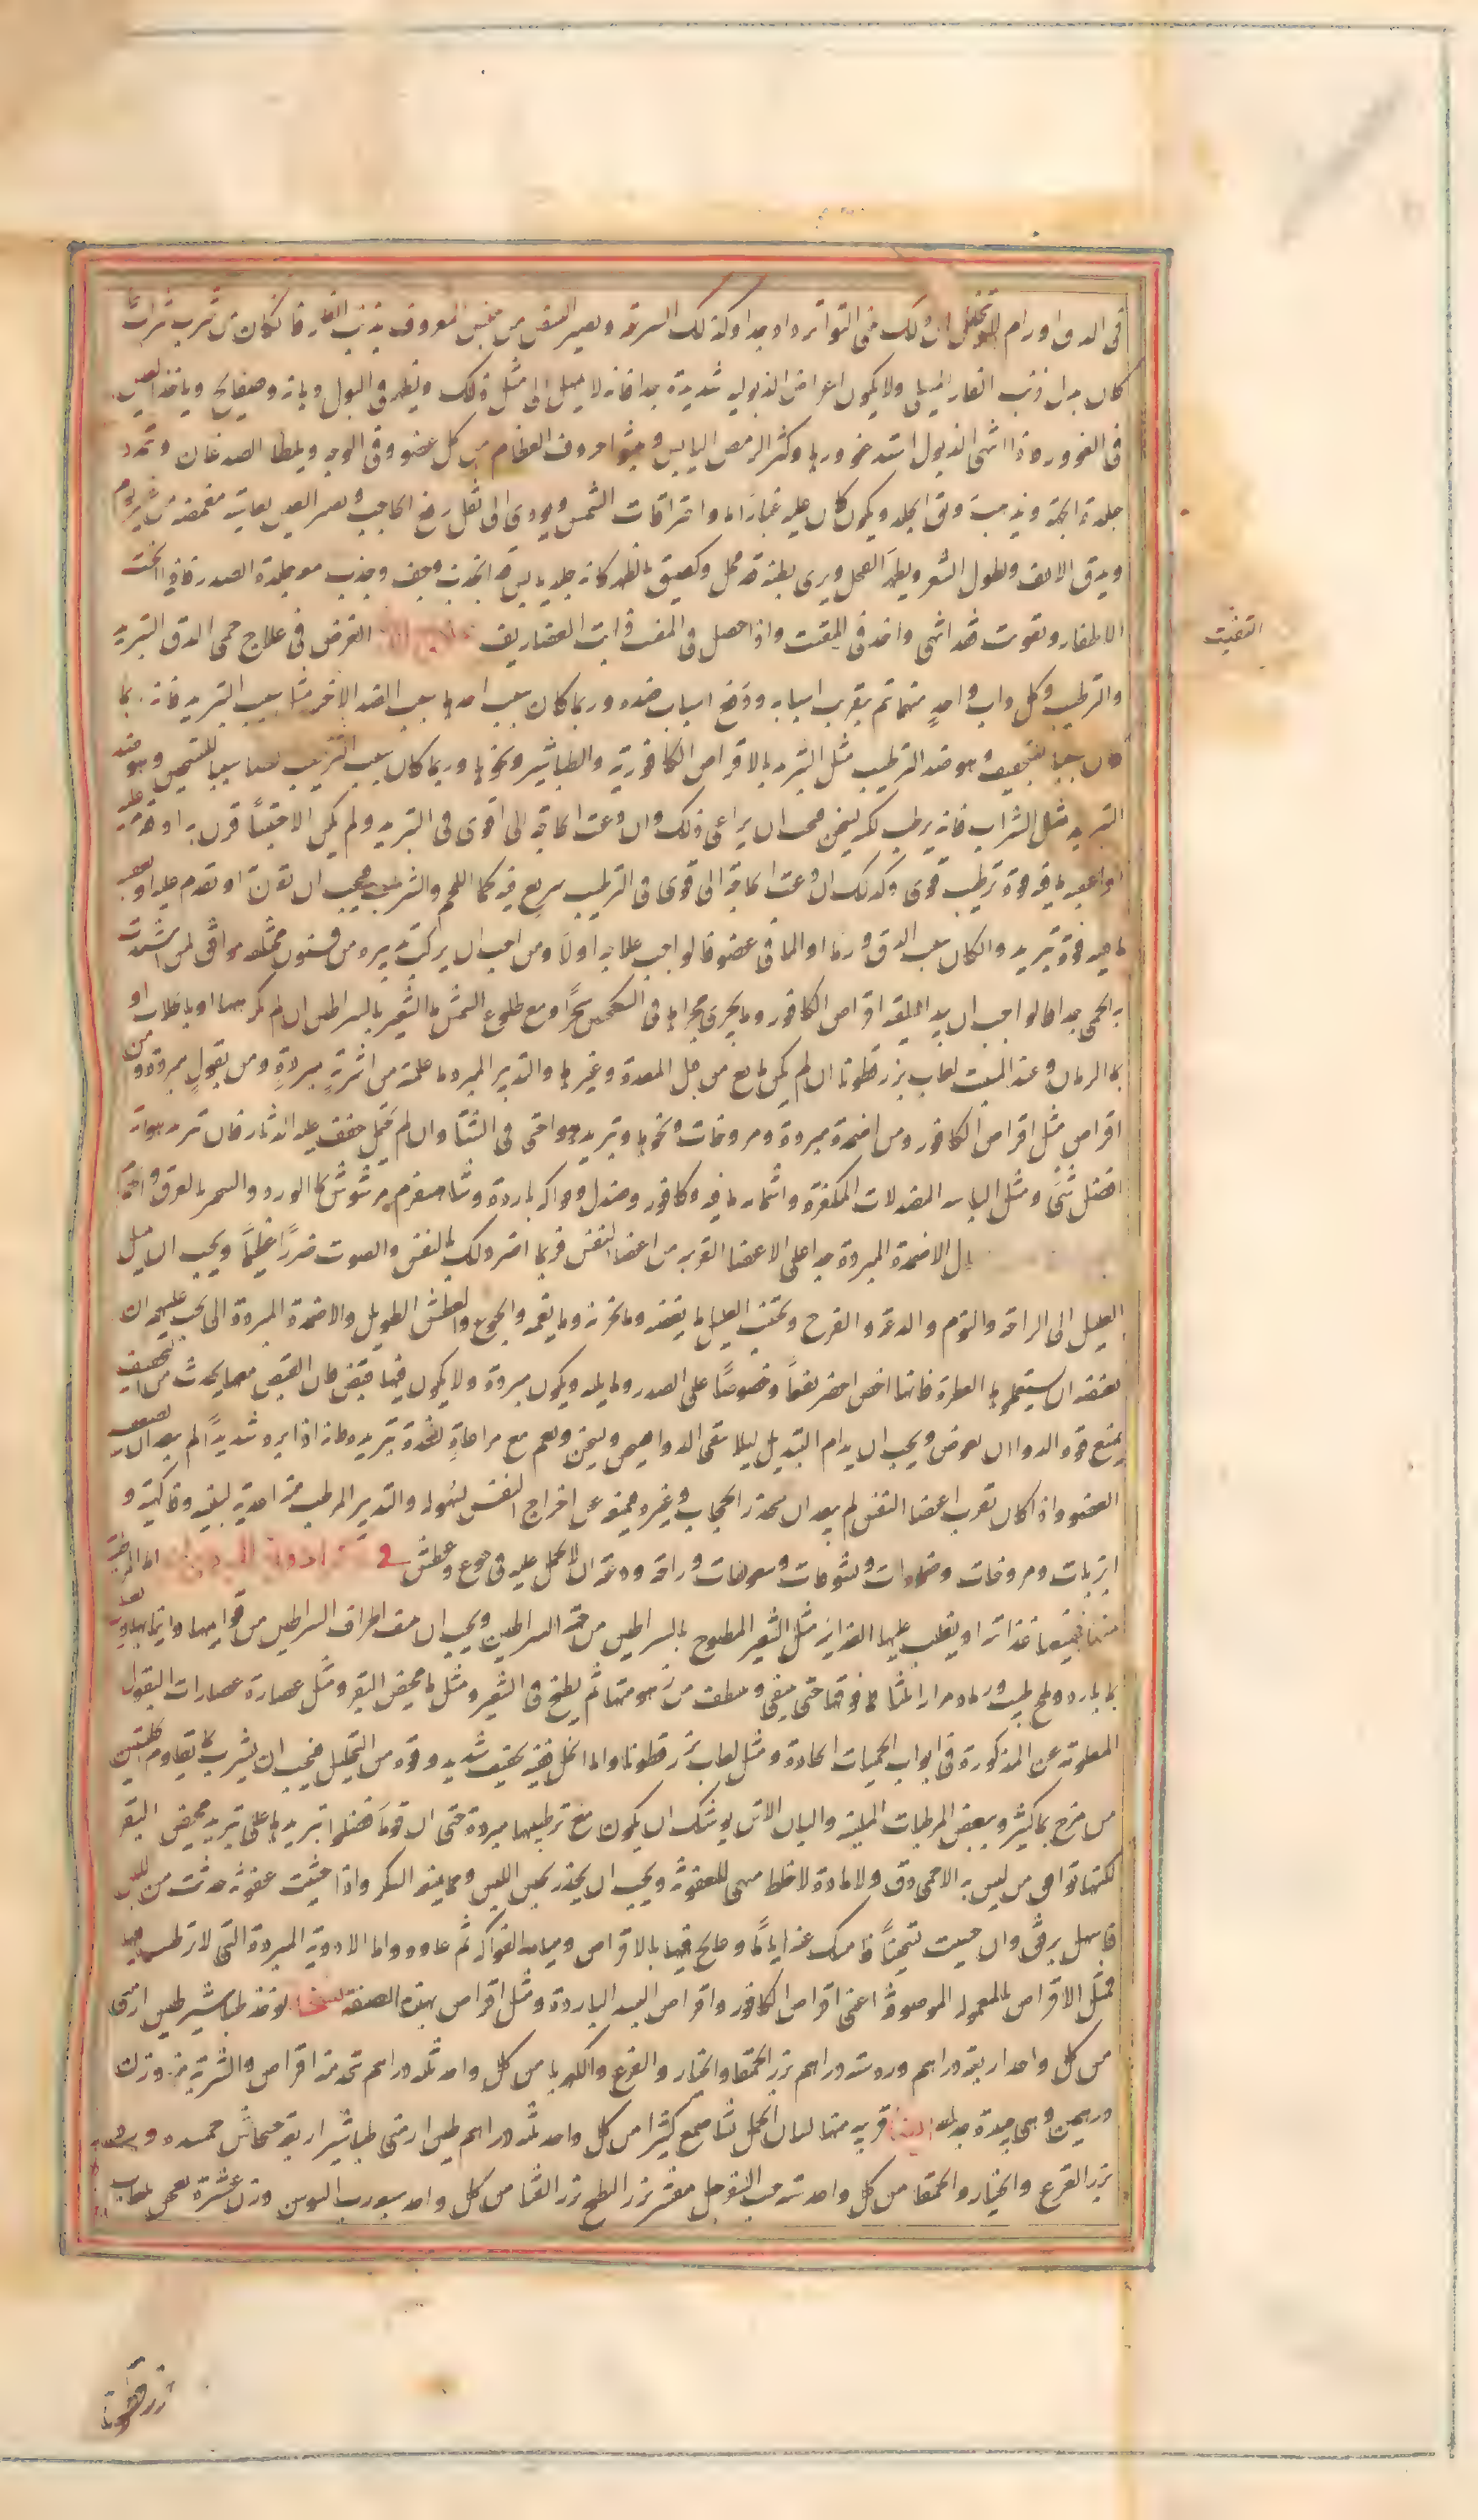 في الدق اورام لم تتحلل ان ذلك في التواتر دا وبدا وكذلك السرعة ويصير النبض من جنس المعروف بذنب الفار فانكان من شرب شراب
كان بدل ذنب الفار المسلي ولا يكون اعراض الذبولية شديدة بدا فانه لا يميل الى مثل ذلك ويظهر في البول دهانة وصفايح وياخذ العين
في الغوور فاذا انتهى الذبول اشتد غوورها وكثر الرمص اليابس ونتوا حروف العظام من كل عضو وفي الوجه ويلطا الصدغان وتمدد
جلدة الجبهة ويذهب رونق الجلد ويكون كان عليه غبارا ما واحتراقات الشمس ويودي الى ثقل رفع الحاجب ويصير العين نعاسية مغمضة من غير نوم
ويدق الانف ويطول الشعر ويظهر القمل ويرى بطنه قد قحل ولصق بالظهر كانه جلد يابس قد انجذب وجف وجذب معه جلدة الصدر فاذا انحنت
الاظفار وتقوست فقد انتهى واخذ في المفتت واذا حصل في المفتت ذابت الغضاريف الغرض في علاج حمى الدق التبريد
التفتت
والترطيب وكل واحد منهما يتم بتقريب اسبابه ودفع اسباب ضده وربما كان سبب احدهما سبب الضد الاخر مثل سبب التبريد فانه ربما
كان سببا للتجفيف وهو ضد الترطيب مثل التبريد بالاقراص الكافورية والطباشير ونحوها وربما كان سبب الترطيب ايضا سببا للتسخين وهو ضد
التبريد مثل الشراب فانه يرطب لكن يسخن فيجب ان يراعى ذلك وان دعت الحاجة الى اقوى في التبريد ولم يكن الا مجففا قرن به او قدم عليه
او اعقب ما فيه قوة ترطيب قوى وكذلك ان دعت الحاجة الى قوى في الترطيب سريع فيه كما اللحم والشراب فيجب ان يقرن او يقدم عليه او يعقب
ما فيه قوة تبريد وان كان سبب الدق ورما او الما في عضو فالواجب علاجه اولا ومن احب ان يركب تدبيره من فنون مختلفه موافق لمن اشتدت
به الحمى جدا فالواجب ان يبدا فيسقيه اقراص الكافور وما يجري مجراها في السكنجبين سحرا ومع طلوع الشمس ماء الشعير بالسراطين ان لم يكرهها او بالجلاب او
بماء الرمان وعند المبيت لعاب بزر قطونا ان لم يكن مانع من جل المعدة وغيرها والتدبير المبرد ما علمته من اشربة مبردة ومن بقول مبردة ومن
اقراص مثل اقراص الكافور ومن اضمدة مبردة ومروخات ونحوها وتبريد هوا حتى في الشتا وان لم يحتمل خفف عليه الدثار فان تبريد هوائه
افضل شي ومثل الباسه الصندلات المكفرة واشمامه ما فيه كافور وصندل وفواكه باردة وشاهسفرم مرشوش بماء الورد والسحر بالعرق واحتما
بل الاضمدة المبردة جدا على الاعضا القريبه من اعضا النفس فربما اضر ذلك بالنفس والصوت ضررا عظيما ويجب ان يميل
العليل الى الراحة والنوم والدعة والفرح وتجنب العليل ما يغضبه وما يحزنه وما يغمه والجوع والعطش الطويل والاضمدة المبردة التي يجب عليهم ان
تفقد ان يستعمل ما العطرة فانها اخص احضر نفعا وخصوصا على الصدر وما يليه ويكون مبردة ولا يكون فيها قبض فان القبض مما يحدث من التجفيف
يمنع قوة الدوا ان يغوص ويجب ان يدام التبديل ليلا يبقى الدوا فيحمى ويسخن ونعم مع مراعاة لشدة تبريده فانه اذا برد شديدا لم يبعد ان يضعف
العضو واذا كان يقرب اعضا التنفس لم يبعد ان يخدر الحجاب وغيره فيمنع عن اخراج النفس بسهوله والتدبير المرطب من اغذية لبنيه وفاكهيه و
ابزنات ومروخات وضمادات ونشوقات وسعوطات وراحة ودعة ان لا يحمل عليه في جوع وعطش في اما المرطبة
منها فجميعها غذائيه او يغلب عليها الغذائيه مثل الشعير المطبوخ بالسراطين من حقه السراطين ويجب ان يقطف اطراف السراطين من قوايمها وانيابها ويغسل
بماء بارد وملح طيب ورماد مرارا ثلثا فما فوقها حتى ينقى وينظف من زهومتها ثم يطبخ في الشعير ومثل ماء مخيض البقر ومثل عصارة عصارات البقول
المعلومة عن المذكورة في ابواب الحميات الحادة ومثل لعاب بزر قطونا واما الخل ففيه تجفيف شديد وقوة من التحليل فيجب ان يشرب بما يقاومه الخلتين
من مزج بماء كثير وببعض المرطبات المبلية والبان الاتن يوشك ان يكون مع ترطيبها مبردة حتى ان قوما فضلوا تبريدها على تبريد مخيض البقر
لكنها توافق من ليس به الا حمى دق ولا مادة لاخلطا مهيا للعفونة ويجب ان يحذر تجبن اللبن ومما يمنعه السكر واذا خشيت عفونة حدثت من اللبن
فاسهل برفق وان خشيت تجبنا فامسك عنه اياما وعالج فيها بالاقراص ومياه الفواكه ثم عاوده واما الادوية المبردة التي لا ترطيب فيها
فمثل الاقراص المعمولة الموصوفة اعني اقراص الكافور واقراص الباردة ومثل اقراص بهذه الصفة يوخذ طباشير طين ارمني
من كل واحد اربعة دراهم ورد ستة دراهم بزر الحمقا والخيار والقرع والكهربا من كل واحد ثلثة دراهم تتخذ منه اقراص والشربة منه وزن
درهمين وهي جيدة جدا ايضا قريبه منها لسان الحمل نشا صمغ كثيرا من كل واحد ثلثة دراهم طين ارمني طباشير اربعة خشخاش خمسه
بزر القرع والخيار والحمقا من كل واحد ستة حب السفرجل مقشر بزر البطيخ بزر القثا من كل واحد سبعة رب السوس وزن عشرة يعجن بلعاب
بزر قطونا